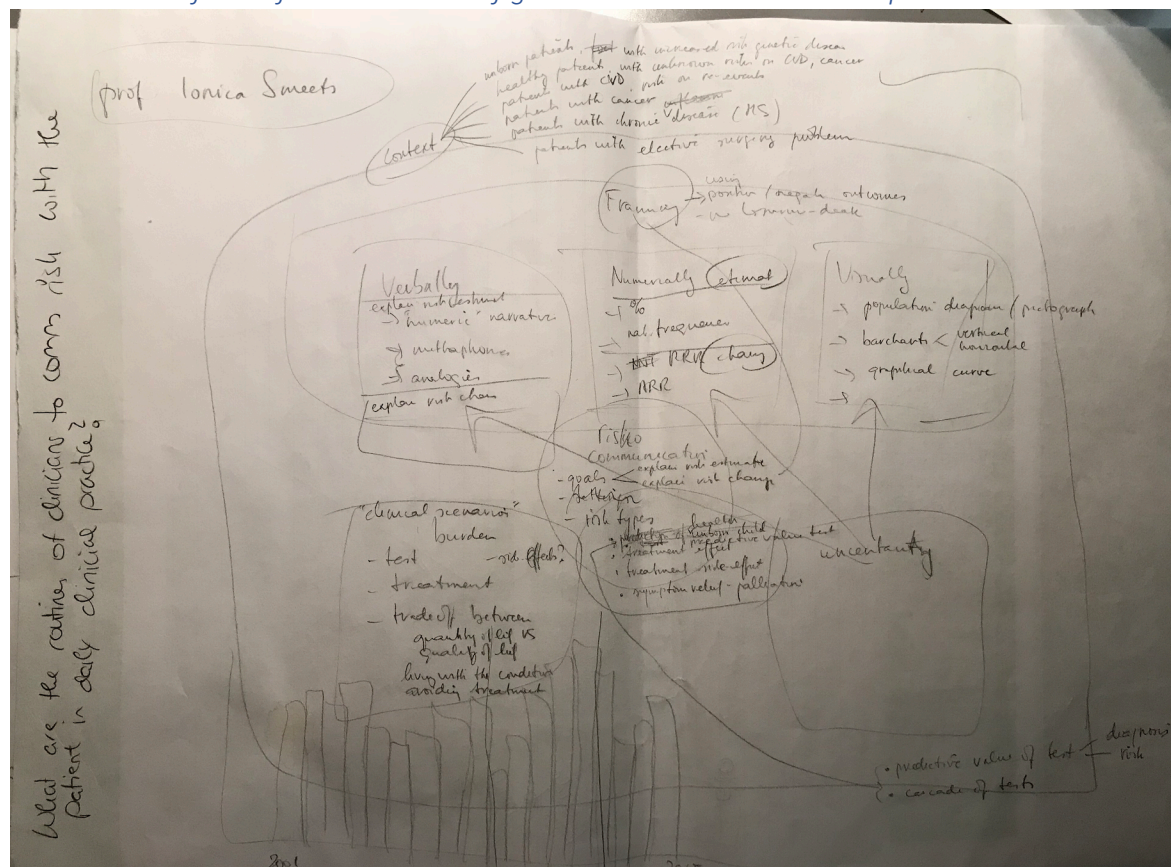 prof Ionica Smeets
What are the routines of clinicians to comm risk with the
patient in daily clinical practice?
unborn patients, with increased risk genetic disease
healthy patients, with unknown risks on CVD, cancer
patients with CVD, risk on re-events
patients with cancer
patients with chronic disease (MS)
patients with elective surgery problem
context
Framing
using
→ positive / negative outcomes
Verbally
explain risk estimate
→ "numeric" narrative
→ metaphores
→ analogies
explain risk chan
Numerically estimat
→ %
→ nat. frequence
→ RRR chang
→ ARR
Visually
→ population diagram / pictograph
→ barcharts < vertical
horizontal
→ graphical curve
→
risk
communication
- goals < explain risk estimate
explain risk change
- risk types
health
unborn child
predictive value test
• treatment effect
• treatment side-effect
• symptom relief - palliation
"clinical scenarios"
burden
- test - side-effects?
- treatment
- trade off between
quantity of life vs
quality of life
living with the condition
avoiding treatment
uncertainty
• predictive value of test < diagnosis
risk
• cascade of tests
2001